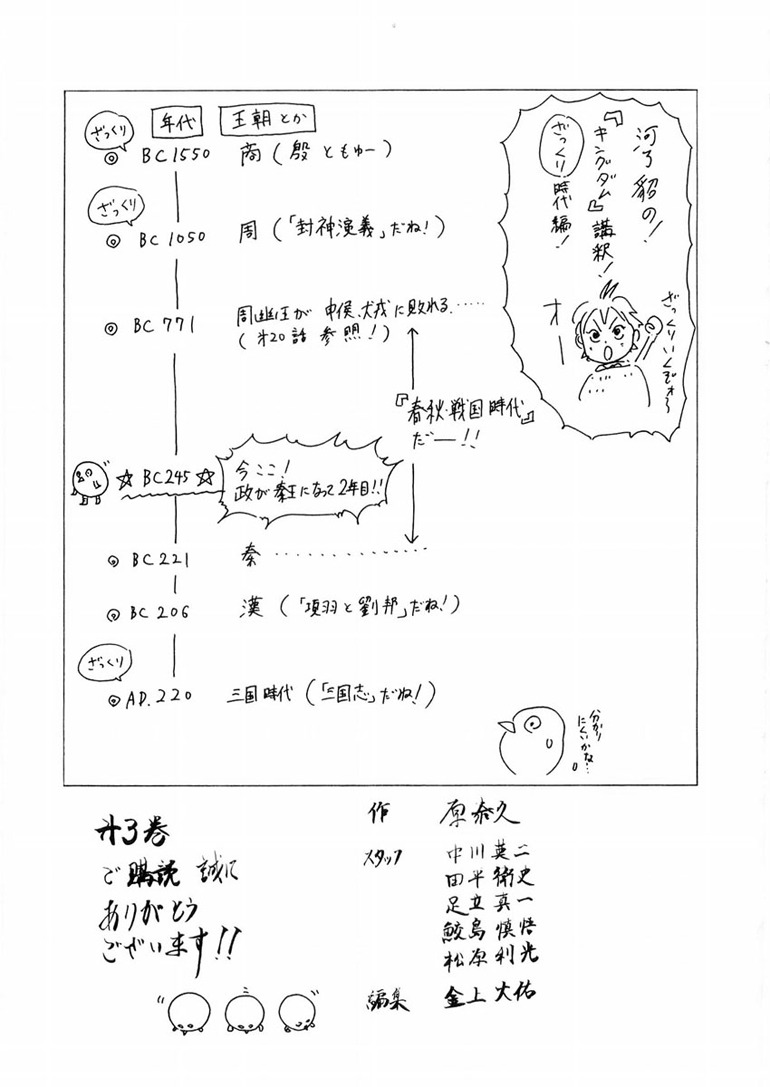 河了貂の!
『キングダム』講釈!
ざっくり時代編!
ざっくりいくぞォ〜
オー
年代
王朝とか
ざっくり
BC1550
商(殷ともゆー)
ざっくり
BC1050
周(「封神演義」だね!)
BC771
周幽王が申侯、犬戎に敗れる……
(才20話 参照!)
『春秋・戦国時代』
だー!!
☆BC245☆
今ここ!
政が秦王になって2年目!!
BC221
秦
BC206
漢(「項羽と劉邦」だね!)
ざっくり
AD.220
三国時代(「三国志」だね!)
分かり
にくいかな…
才3巻
ご購読 誠に
ありがとう
ございます!!
作 原泰久
スタッフ 中川英二
田平衛史
足立真一
鮫島慎悟
松原利光
編集 金上大佑